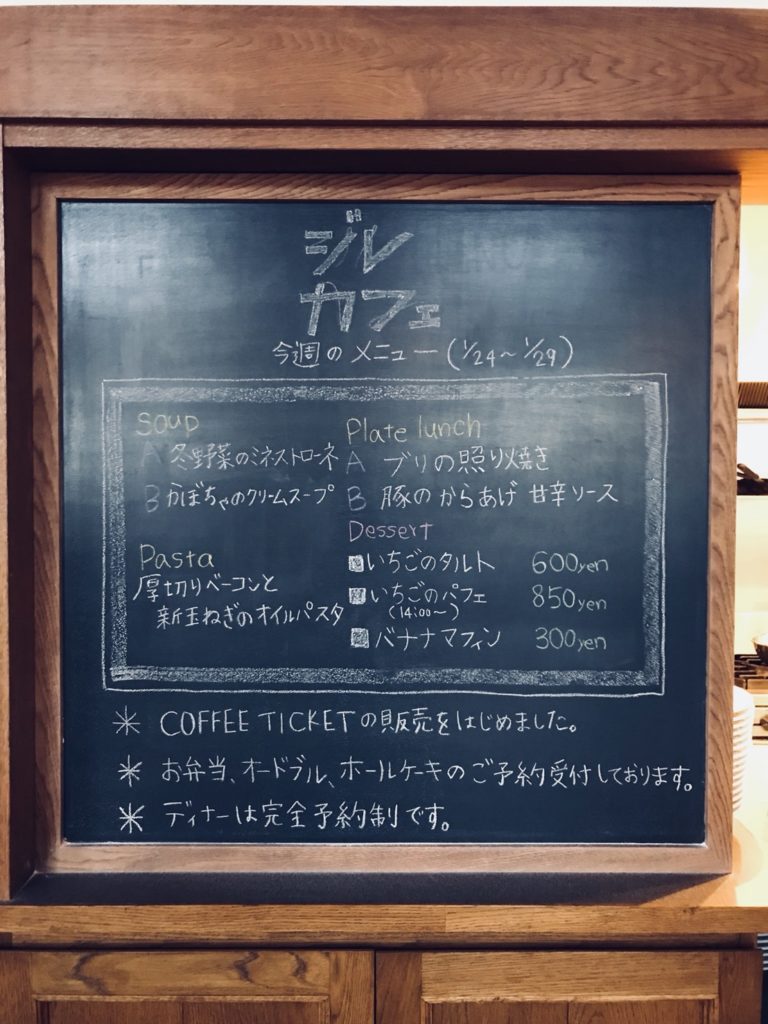 ジル
カフェ
今週のメニュー(1/24〜1/29)
Soup
A 冬野菜のミネストローネ
B かぼちゃのクリームスープ
Pasta
厚切りベーコンと
新玉ねぎのオイルパスタ
Plate lunch
A ブリの照り焼き
B 豚のからあげ 甘辛ソース
Dessert
いちごのタルト 600yen
いちごのパフェ 850yen
(14:00〜)
バナナマフィン 300yen
＊ COFFEE TICKETの販売をはじめました。
＊ お弁当、オードブル、ホールケーキのご予約受付しております。
＊ ディナーは完全予約制です。